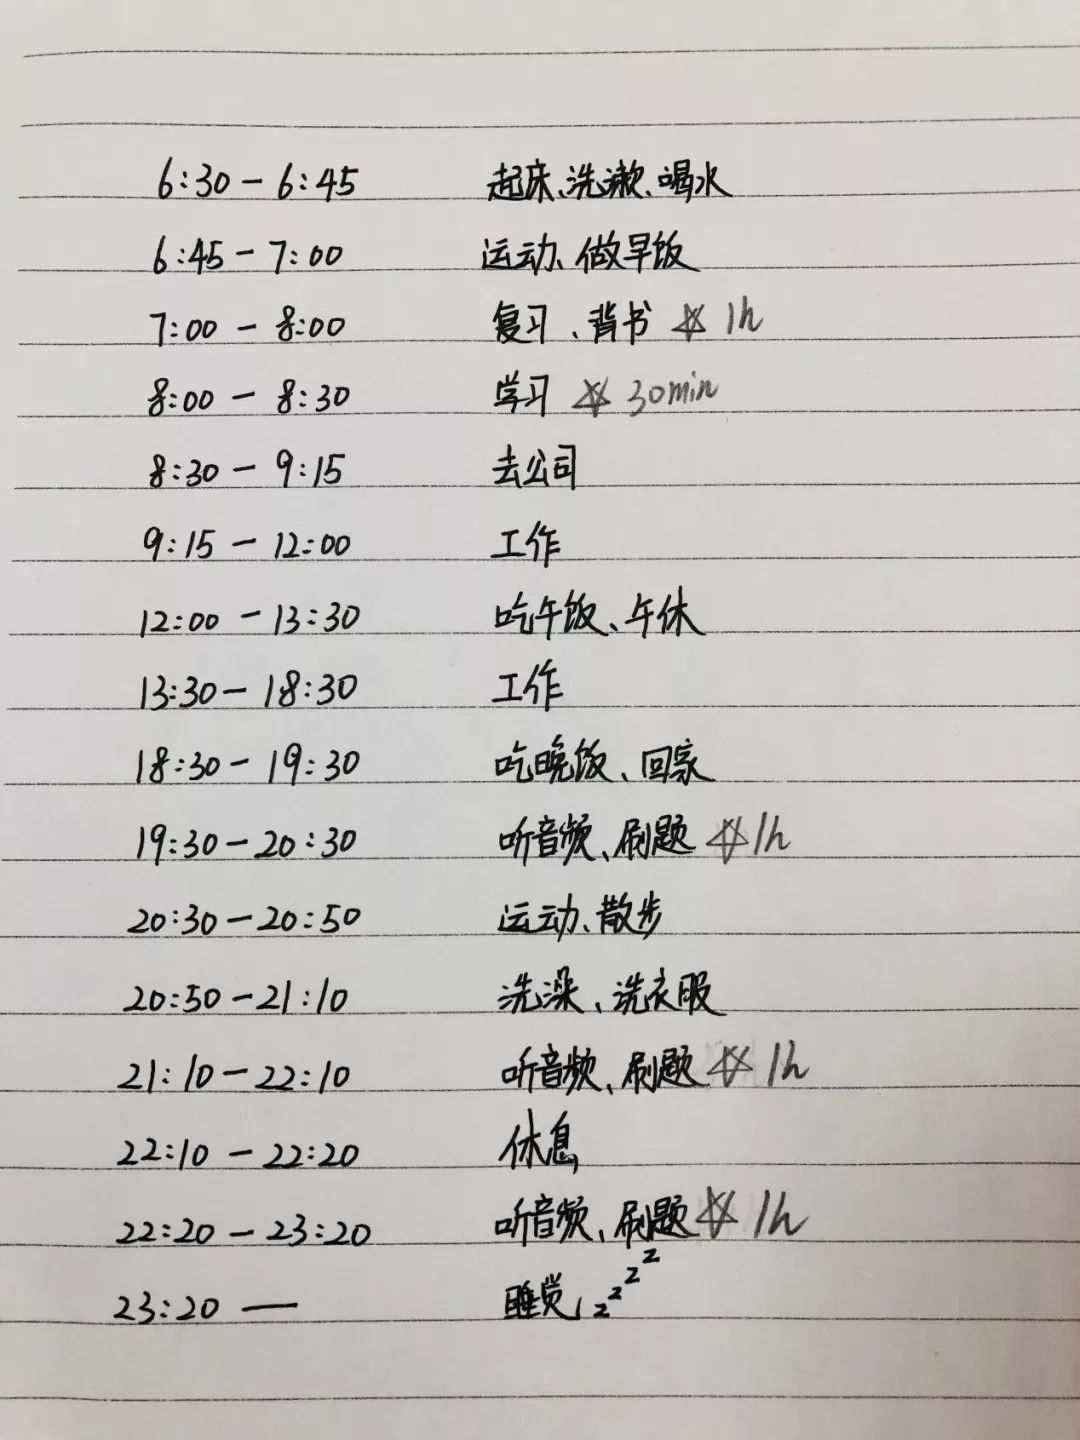 6:30 - 6:45 起床、洗漱、喝水
6:45 - 7:00 运动、做早饭
7:00 - 8:00 复习、背书 ☆ 1h
8:00 - 8:30 学习 ☆ 30min
8:30 - 9:15 去公司
9:15 - 12:00 工作
12:00 - 13:30 吃午饭、午休
13:30 - 18:30 工作
18:30 - 19:30 吃晚饭、回家
19:30 - 20:30 听音频、刷题 ☆ 1h
20:30 - 20:50 运动、散步
20:50 - 21:10 洗澡、洗衣服
21:10 - 22:10 听音频、刷题 ☆ 1h
22:10 - 22:20 休息
22:20 - 23:20 听音频、刷题 ☆ 1h
23:20 — 睡觉, zzzz